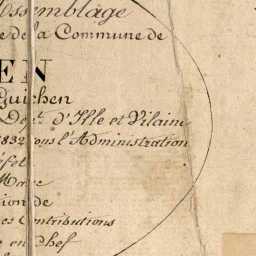 assemblage
de la Commune de
EN
Guichen
Dept d'Ille et Vilaine
1832 sous l'Administration
éfet
Maire
ion de
es Contributions
en Chef